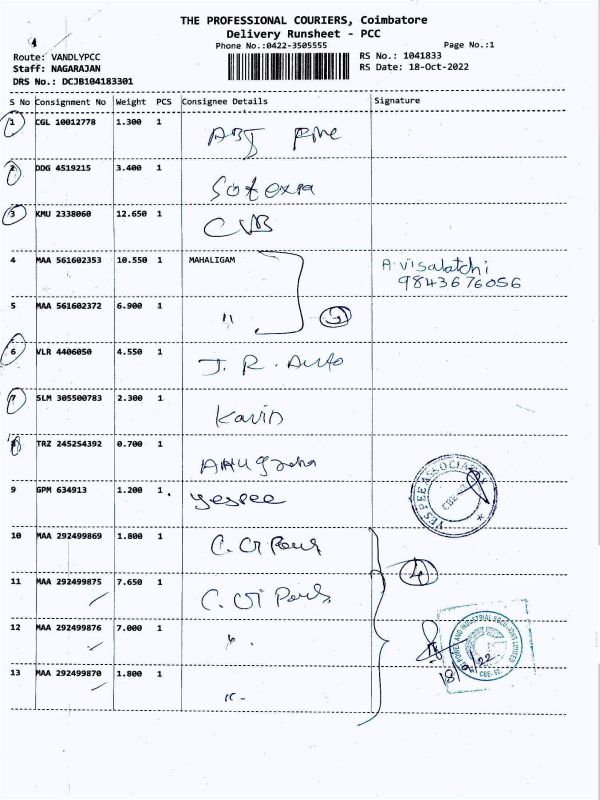 THE PROFESSIONAL COURIERS, Coimbatore
Delivery Runsheet - PCC
Phone No.:0422-3505555 Page No.:1
Route: VANDLYPCC RS No.: 1041833
Staff: NAGARAJAN RS Date: 18-Oct-2022
DRS No.: DCJB104183301
S No Consignment No Weight PCS Consignee Details Signature
1 CGL 10012778 1.300 1
2 DDG 4519215 3.400 1
Sotexpa
3 KMU 2338060 12.650 1
CVB
4 MAA 561602353 10.550 1 MAHALIGAM
A. Visalatchi
9843676056
5 MAA 561602372 6.900 1
"
6 VLR 4406050 4.550 1
J. R. Auto
7 SLM 305500783 2.300 1
Kavin
8 TRZ 245254392 0.700 1
Anugraha
9 GPM 634913 1.200 1 yespee
YES PEE ASSOCIATES
CBE
10 MAA 292499869 1.800 1
C. GI
4
11 MAA 292499875 7.650 1
C. GI
12 MAA 292499876 7.000 1
"
POWER AND INDUSTRIAL SOLUTIONS LIMITED
CBE-
13 MAA 292499870 1.800 1
"